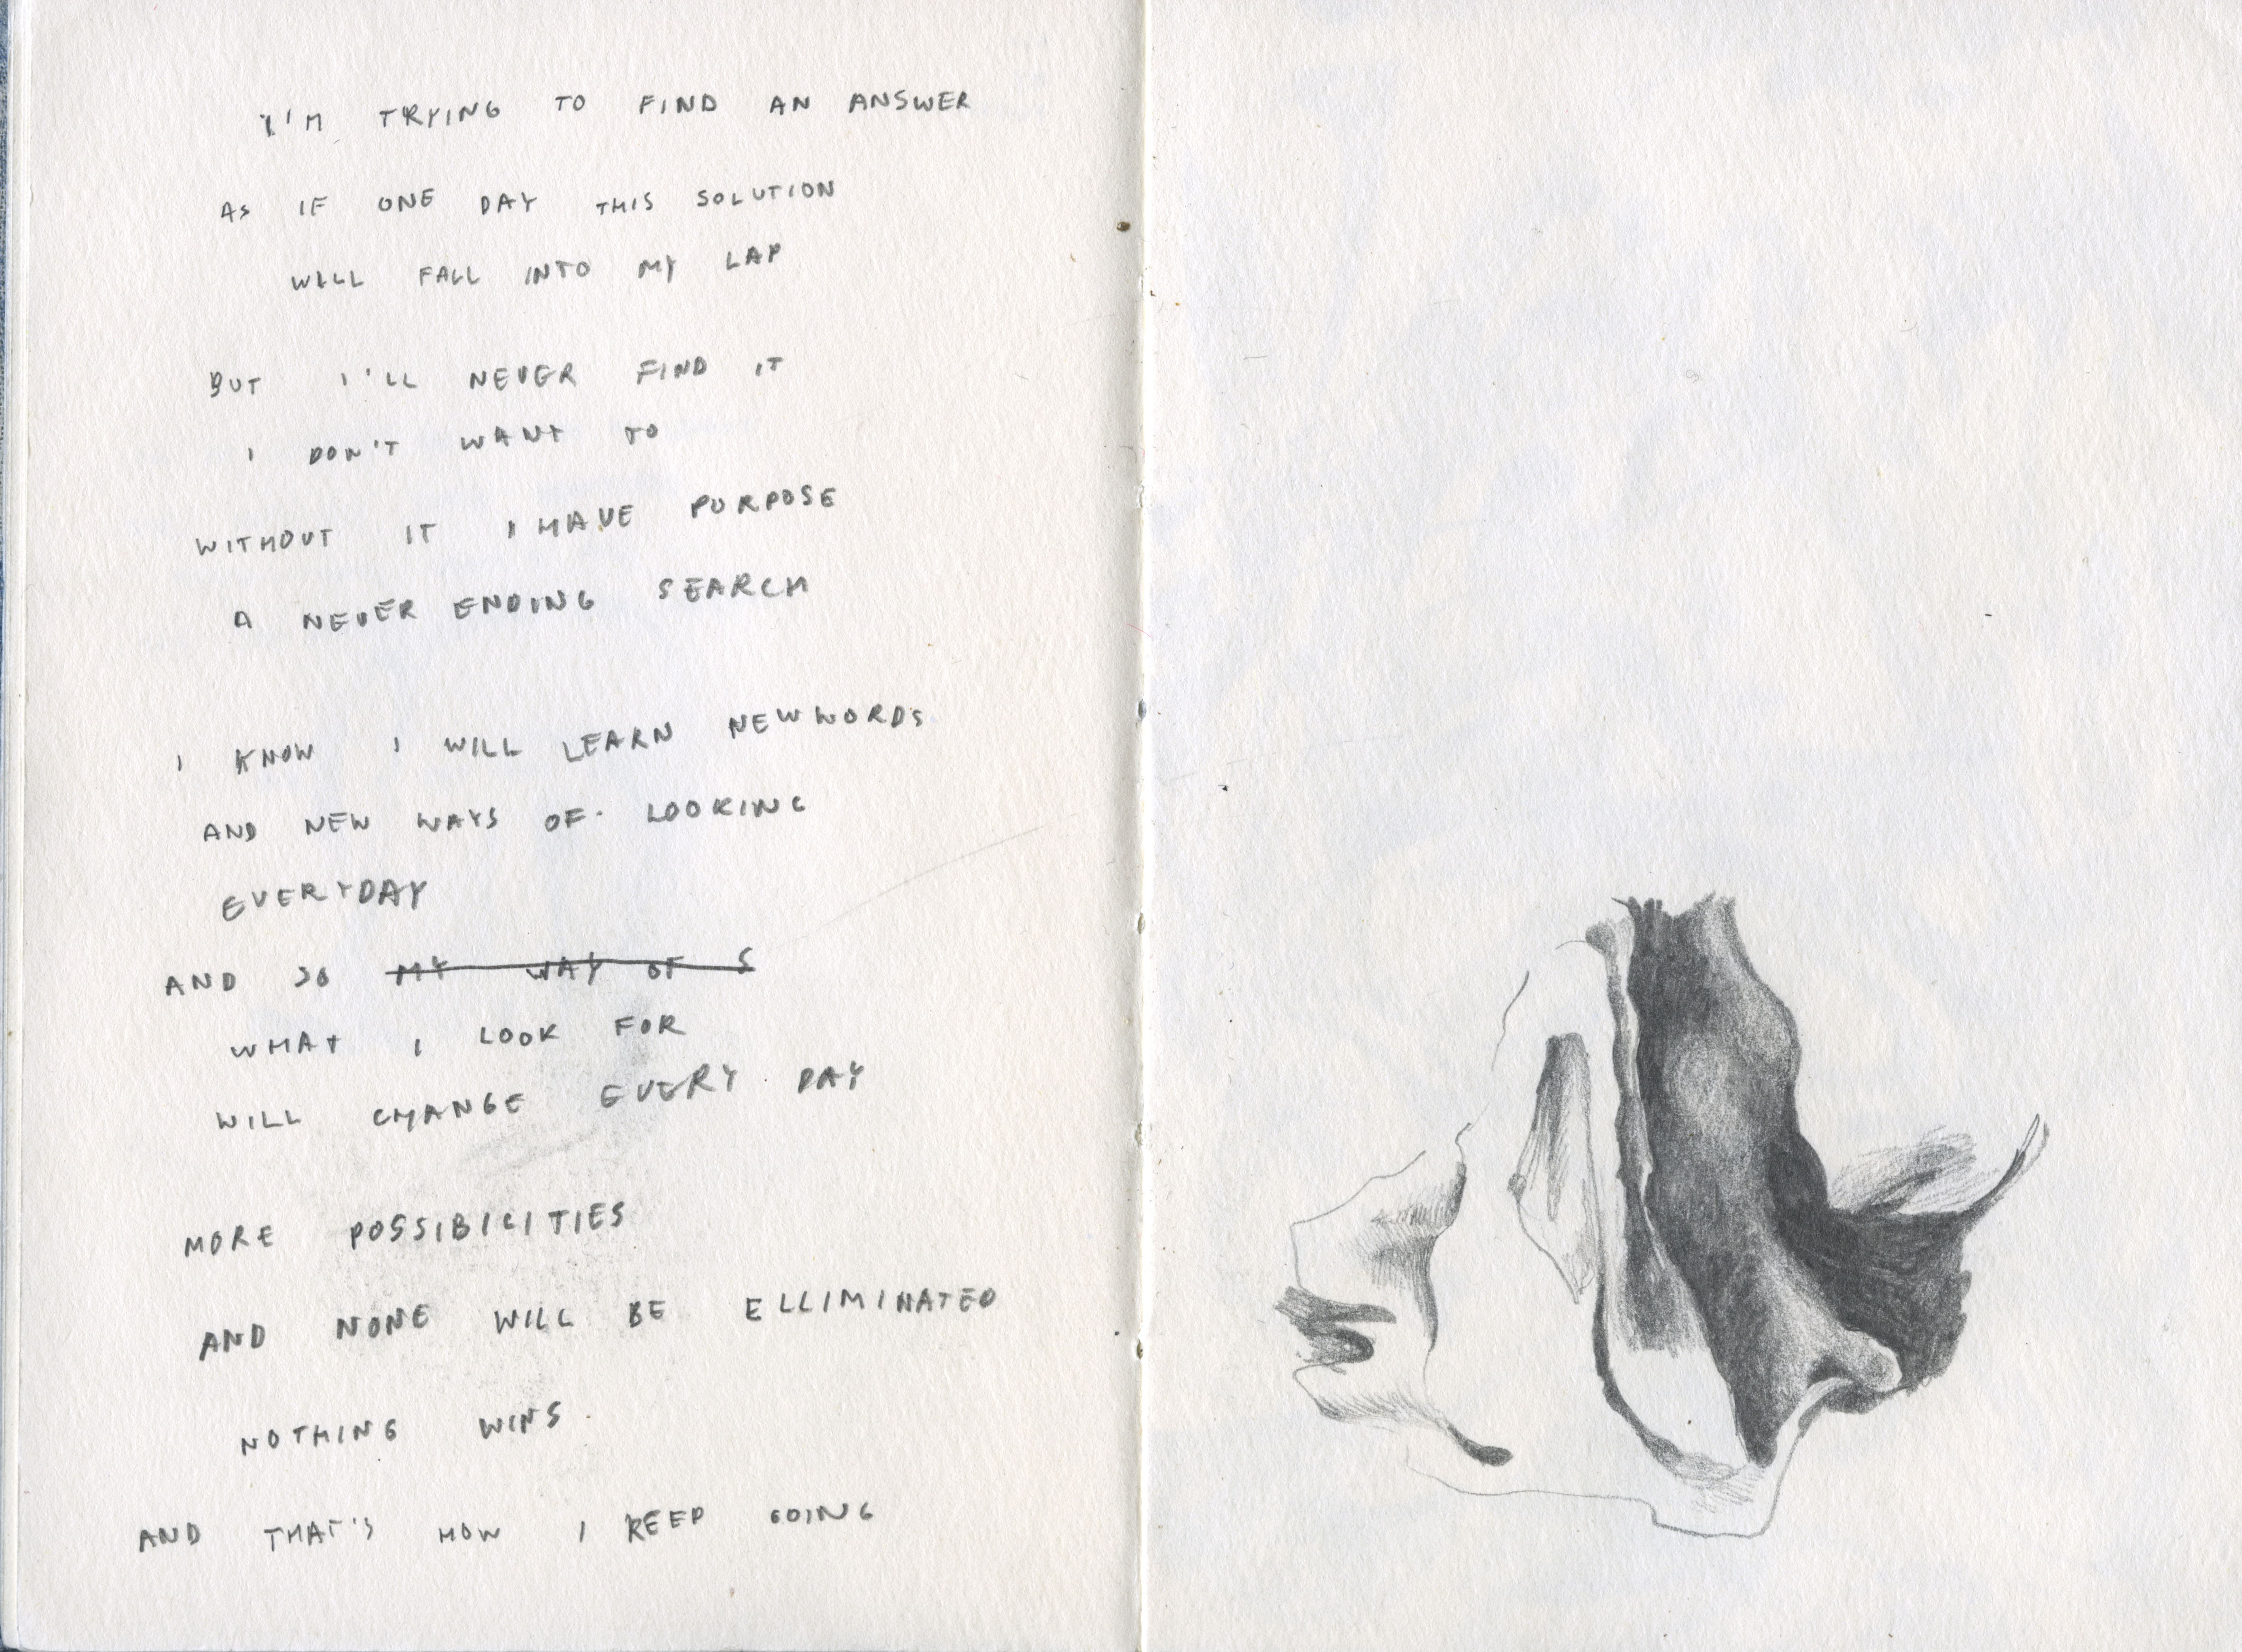 I'M TRYING TO FIND AN ANSWER
AS IF ONE DAY THIS SOLUTION
WILL FALL INTO MY LAP
BUT I'LL NEVER FIND IT
I DON'T WANT TO
WITHOUT IT I HAVE PURPOSE
A NEVER ENDING SEARCH
I KNOW I WILL LEARN NEW WORDS
AND NEW WAYS OF LOOKING
EVERYDAY
AND SO MY WAY OF S
WHAT I LOOK FOR
WILL CHANGE EVERY DAY
MORE POSSIBILITIES
AND NONE WILL BE ELLIMINATED
NOTHING WINS.
AND THAT'S HOW I KEEP GOING